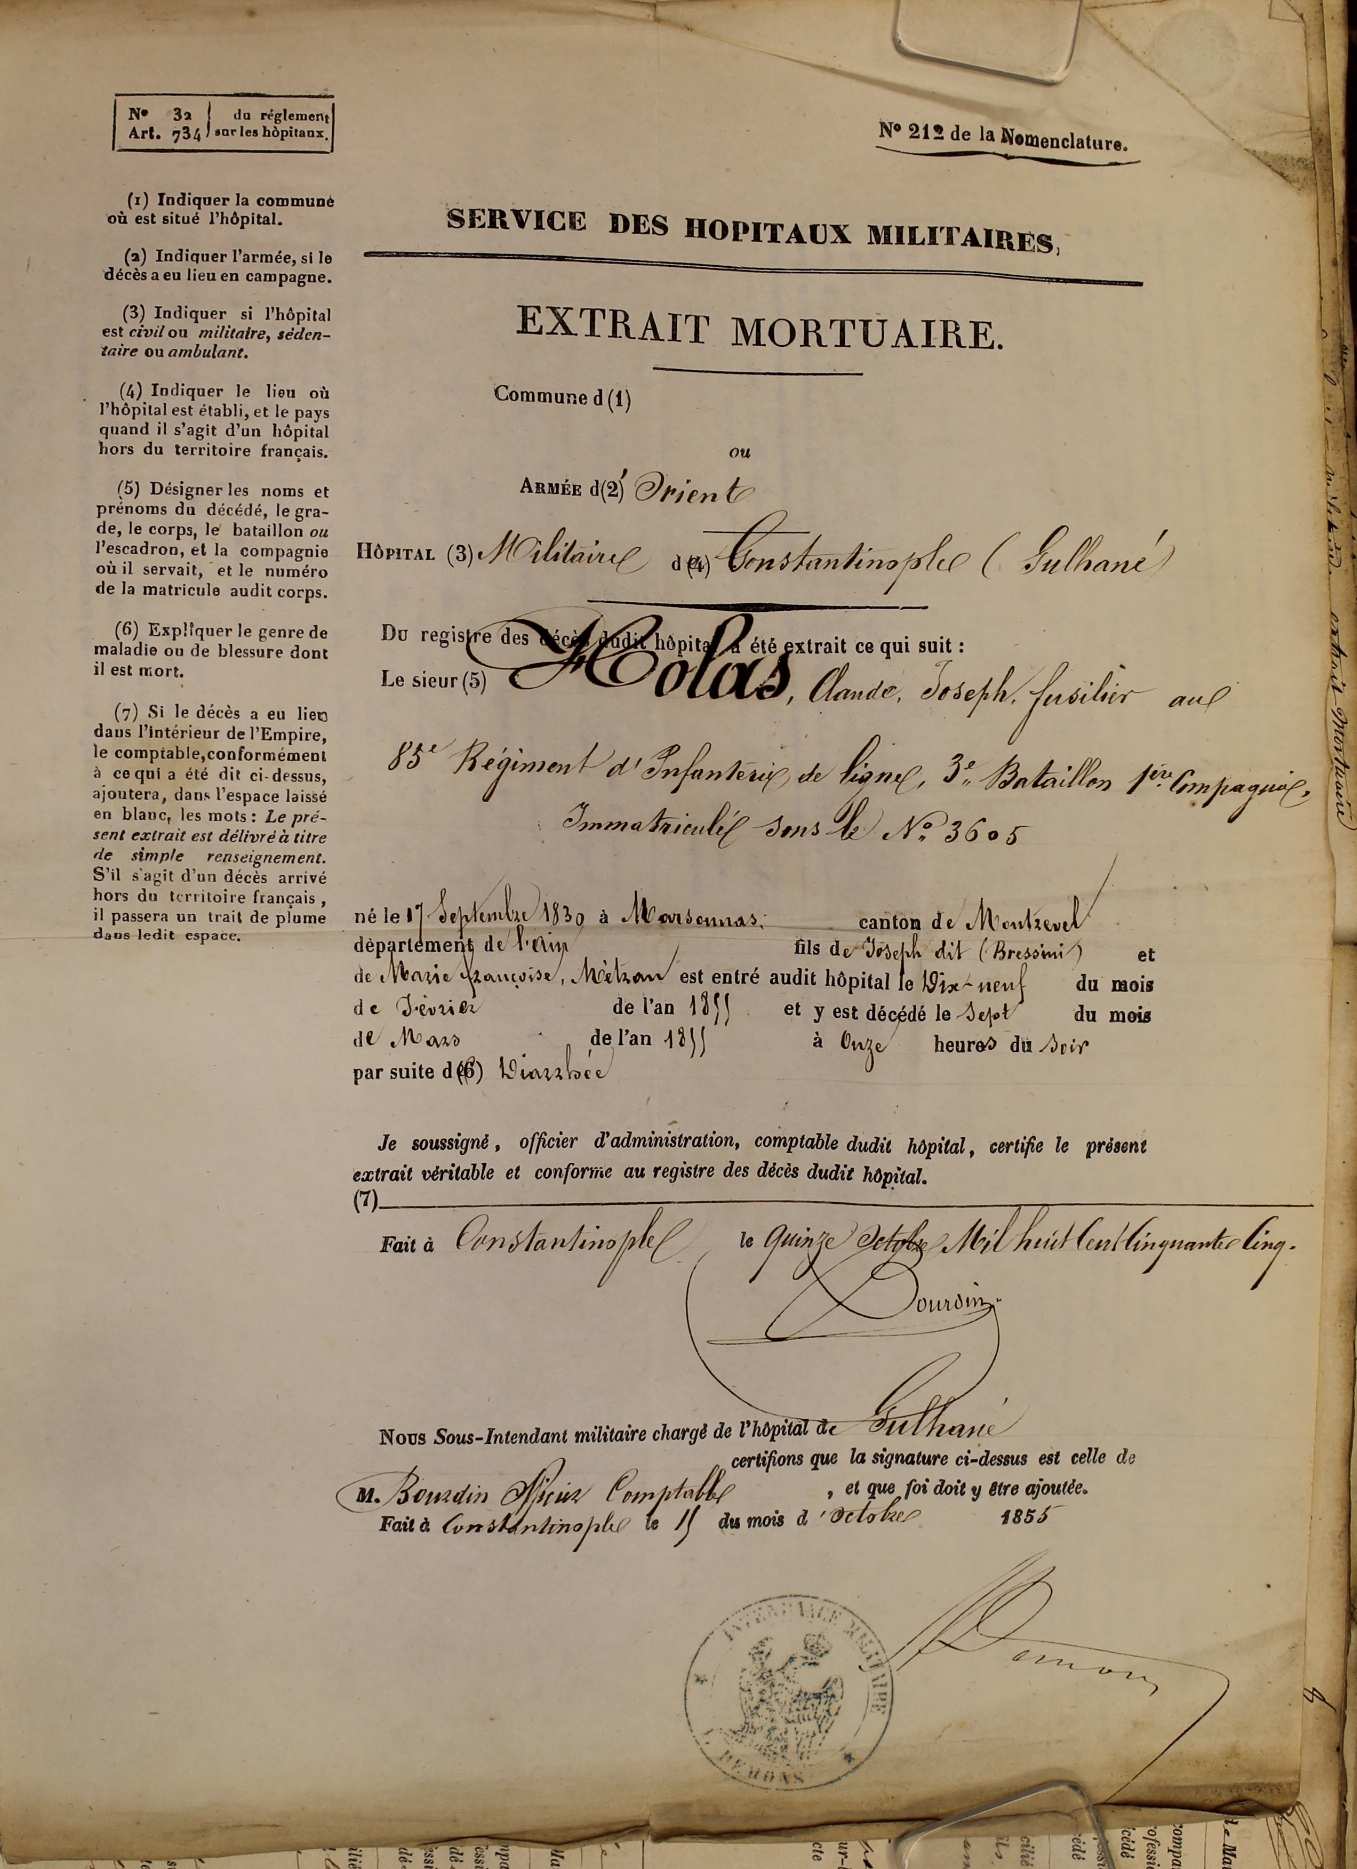 Nº 32 du réglement
Art. 734 sur les hôpitaux.
Nº 212 de la Nomenclature.
(1) Indiquer la commune
où est situé l'hôpital.
(2) Indiquer l'armée, si le
décès a eu lieu en campagne.
(3) Indiquer si l'hôpital
est civil ou militaire, séden-
taire ou ambulant.
(4) Indiquer le lieu où
l'hôpital est établi, et le pays
quand il s'agit d'un hôpital
hors du territoire français.
(5) Désigner les noms et
prénoms du décédé, le gra-
de, le corps, le bataillon ou
l'escadron, et la compagnie
où il servait, et le numéro
de la matricule audit corps.
(6) Expliquer le genre de
maladie ou de blessure dont
il est mort.
(7) Si le décès a eu lieu
dans l'intérieur de l'Empire,
le comptable, conformément
à ce qui a été dit ci-dessus,
ajoutera, dans l'espace laissé
en blanc, les mots : Le pré-
sent extrait est délivré à titre
de simple renseignement.
S'il s'agit d'un décès arrivé
hors du territoire français,
il passera un trait de plume
dans ledit espace.
SERVICE DES HOPITAUX MILITAIRES,
EXTRAIT MORTUAIRE.
Commune d (1)
ou
ARMÉE d(2)' Orient
HÔPITAL (3) Militaire de (4) Constantinople (Gulhané)
Du registre des décès dudit hôpital a été extrait ce qui suit :
Le sieur (5) Holas, Claude, Joseph, fusilier au
85e Régiment d'Infanterie de ligne, 3e Bataillon 1ère Compagnie,
Immatriculé sous le Nº 3605
né le 17 Septembre 1830 à Marsonnas, canton de Montrevel
département de l'Ain fils de Joseph dit (Bressini) et
de Marie françoise, Metzan est entré audit hôpital le Dix-neuf du mois
de Février de l'an 1855 et y est décédé le Sept du mois
de Mars de l'an 1855 à Onze heures du Soir
par suite de (6) Diarrhée
Je soussigné, officier d'administration, comptable dudit hôpital, certifie le présent
extrait véritable et conforme au registre des décès dudit hôpital.
(7)
Fait à Constantinople le quinze Octobre Mil huit Cent Cinquante Cinq.
Bourdin
Nous Sous-Intendant militaire chargé de l'hôpital de Gulhané
certifions que la signature ci-dessus est celle de
M. Bourdin Officier Comptable, et que foi doit y être ajoutée.
Fait à Constantinople le 15 du mois d'Octobre 1855
INTENDANCE MILITAIRE
extrait Mortuaire